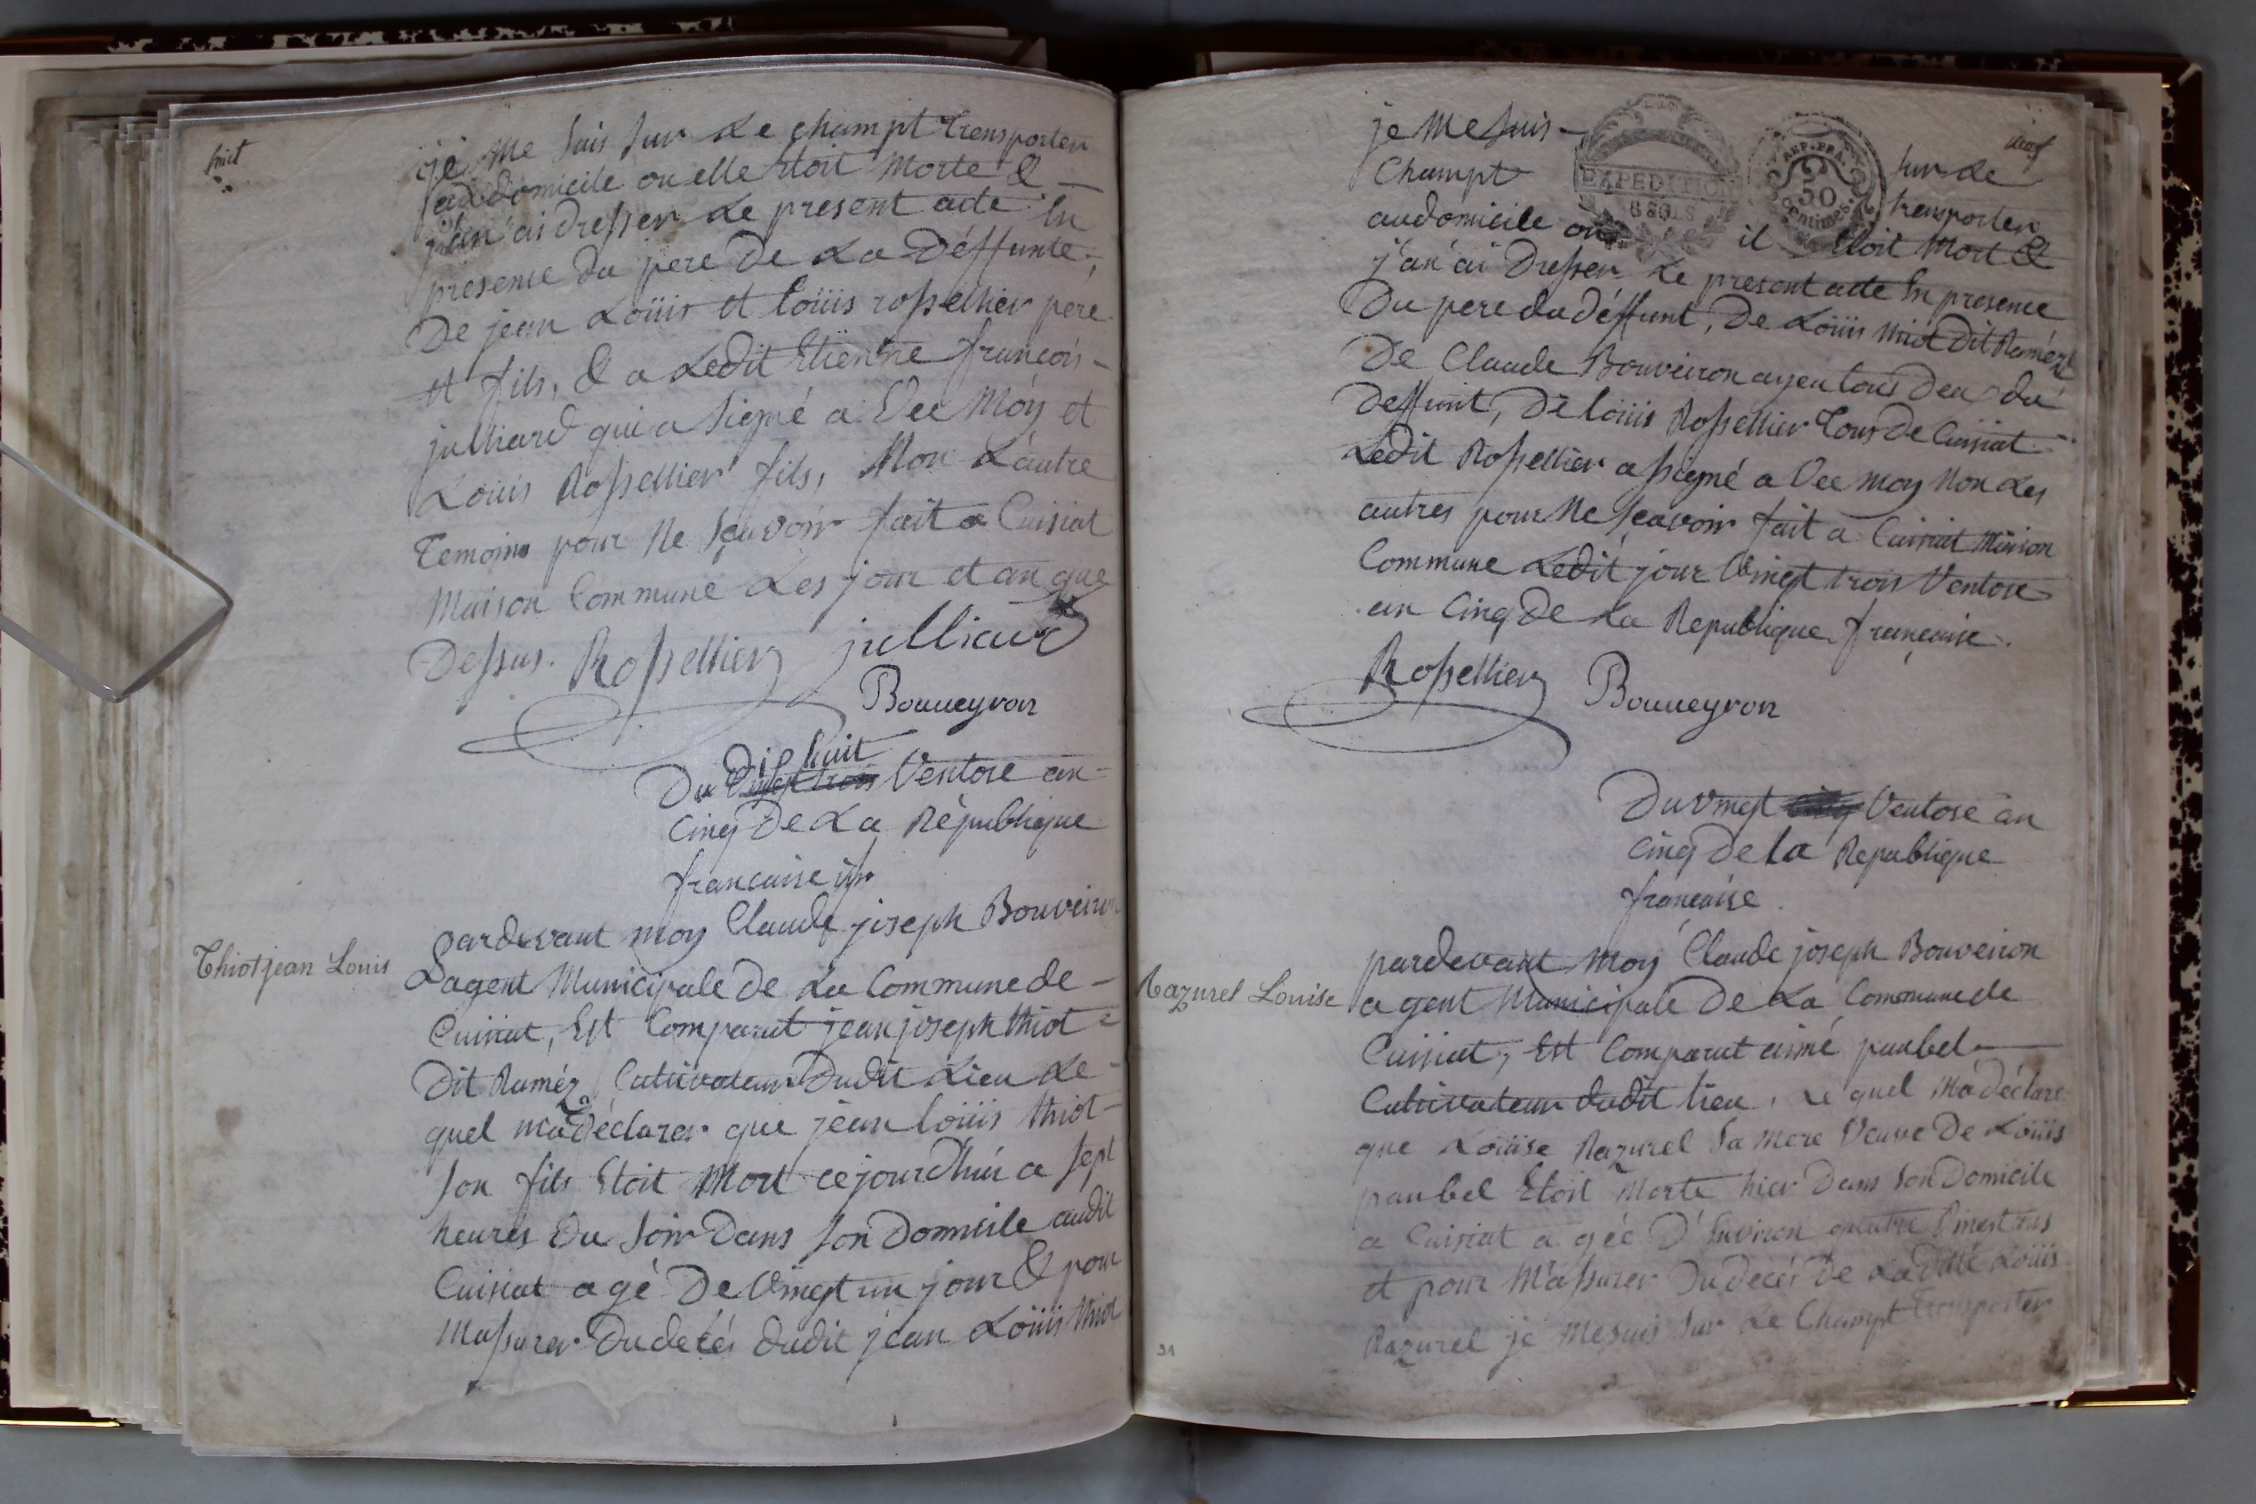 huit
je me suis sur le champt transporter
au domicile ou elle etoit morte &
j'an ai dresser le present acte en
presence du pere de la déffunte,
De jean Loüis et loüis rossellier pére
et fils, & a ledit Etienne françois
julliard qui a signé a vec móy et
Loüis Rossellier fils, Non L'autre
Temoins pour ne sçavoir fait a Cuisiat
Maison Commune les jour et an que
Dessus. Rossellier julliard
Bouueyron
Dix huit
Du vingt trois Ventose an
Cinq De La République
francaise
Thiot jean Louis
pardevant moy Claude joseph Bouveiron
L'agent Municipale de La Commune de
Cuisiat, Est Comparut jean joseph thiot
Dit Raméz Cultivateur Dudit Lieu Le
quel m'a déclarer que jean loüis thiot
son fils Etoit Mort cejourd'hui a sept
heures Du soir Dans son Domicile audit
Cuisiat agé De vingt un jour & pour
M'assurer Du decés dudit jean Loüis thiot
je me suis sur le
Champt transporter
EXPEDITION
6 SOLS
REP. FRA.
50
centimes.
au domicile ou il etoit Mort &
j'an ai Dresser Le present acte En presence
Du pere du déffunt, De Loüis thiot Dit Raméz
De Claude Bouveiron ayeu tous deu du
deffunt, De loüis Rossellier Tous de Cuisiat
Ledit Rossellier a signé a vec moy Non Les
autres pour Ne sçavoir fait a Cuisiat Maison
Commune Ledit jour vingt trois Ventose
an Cinq De La Republique françaisse.
Rossellier Bouueyron
Du vingt cinq Ventose an
Cinq de la Republique
françaisse.
Razurel Louise
pardevant Moy Claude joseph Bouveiron
agent Municipale De La Commune de
Cuisiat, Est Comparut aimé paubel
Cultivateur dudit lieu, Le quel M'a déclare
que Loüise Razurel sa mere Veuve De Loüis
paubel Etoit morte hier Dans son Domicile
a Cuisiat a géé D'Environ quatre vingt ans
et pour M'assurer Du decés de La dite Loüis
Razurel je me suis sur Le Champt transporter
31